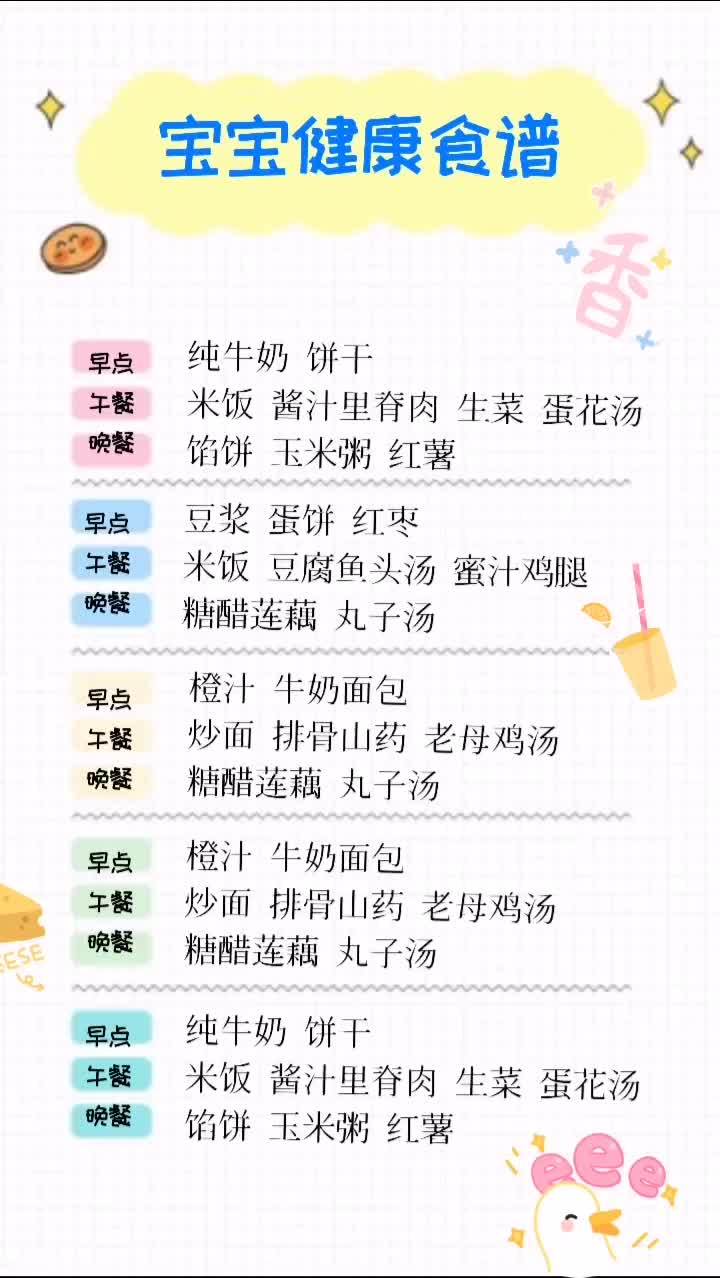 宝宝健康食谱
香
早点 纯牛奶 饼干
午餐 米饭 酱汁里脊肉 生菜 蛋花汤
晚餐 馅饼 玉米粥 红薯
早点 豆浆 蛋饼 红枣
午餐 米饭 豆腐鱼头汤 蜜汁鸡腿
晚餐 糖醋莲藕 丸子汤
早点 橙汁 牛奶面包
午餐 炒面 排骨山药 老母鸡汤
晚餐 糖醋莲藕 丸子汤
早点 橙汁 牛奶面包
午餐 炒面 排骨山药 老母鸡汤
晚餐 糖醋莲藕 丸子汤
EESE
早点 纯牛奶 饼干
午餐 米饭 酱汁里脊肉 生菜 蛋花汤
晚餐 馅饼 玉米粥 红薯
eee